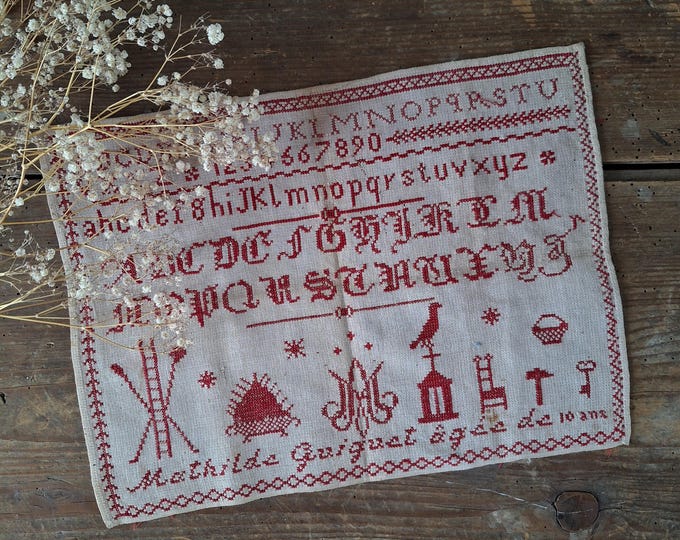 KLMNOPQRSTU
67890
abcdefghiJKlmnopqrstuvxyz
ABCDEFGHIKLM
NOPQRSTUVXYZ
Mathilde Guiguet âgée de 10 ans